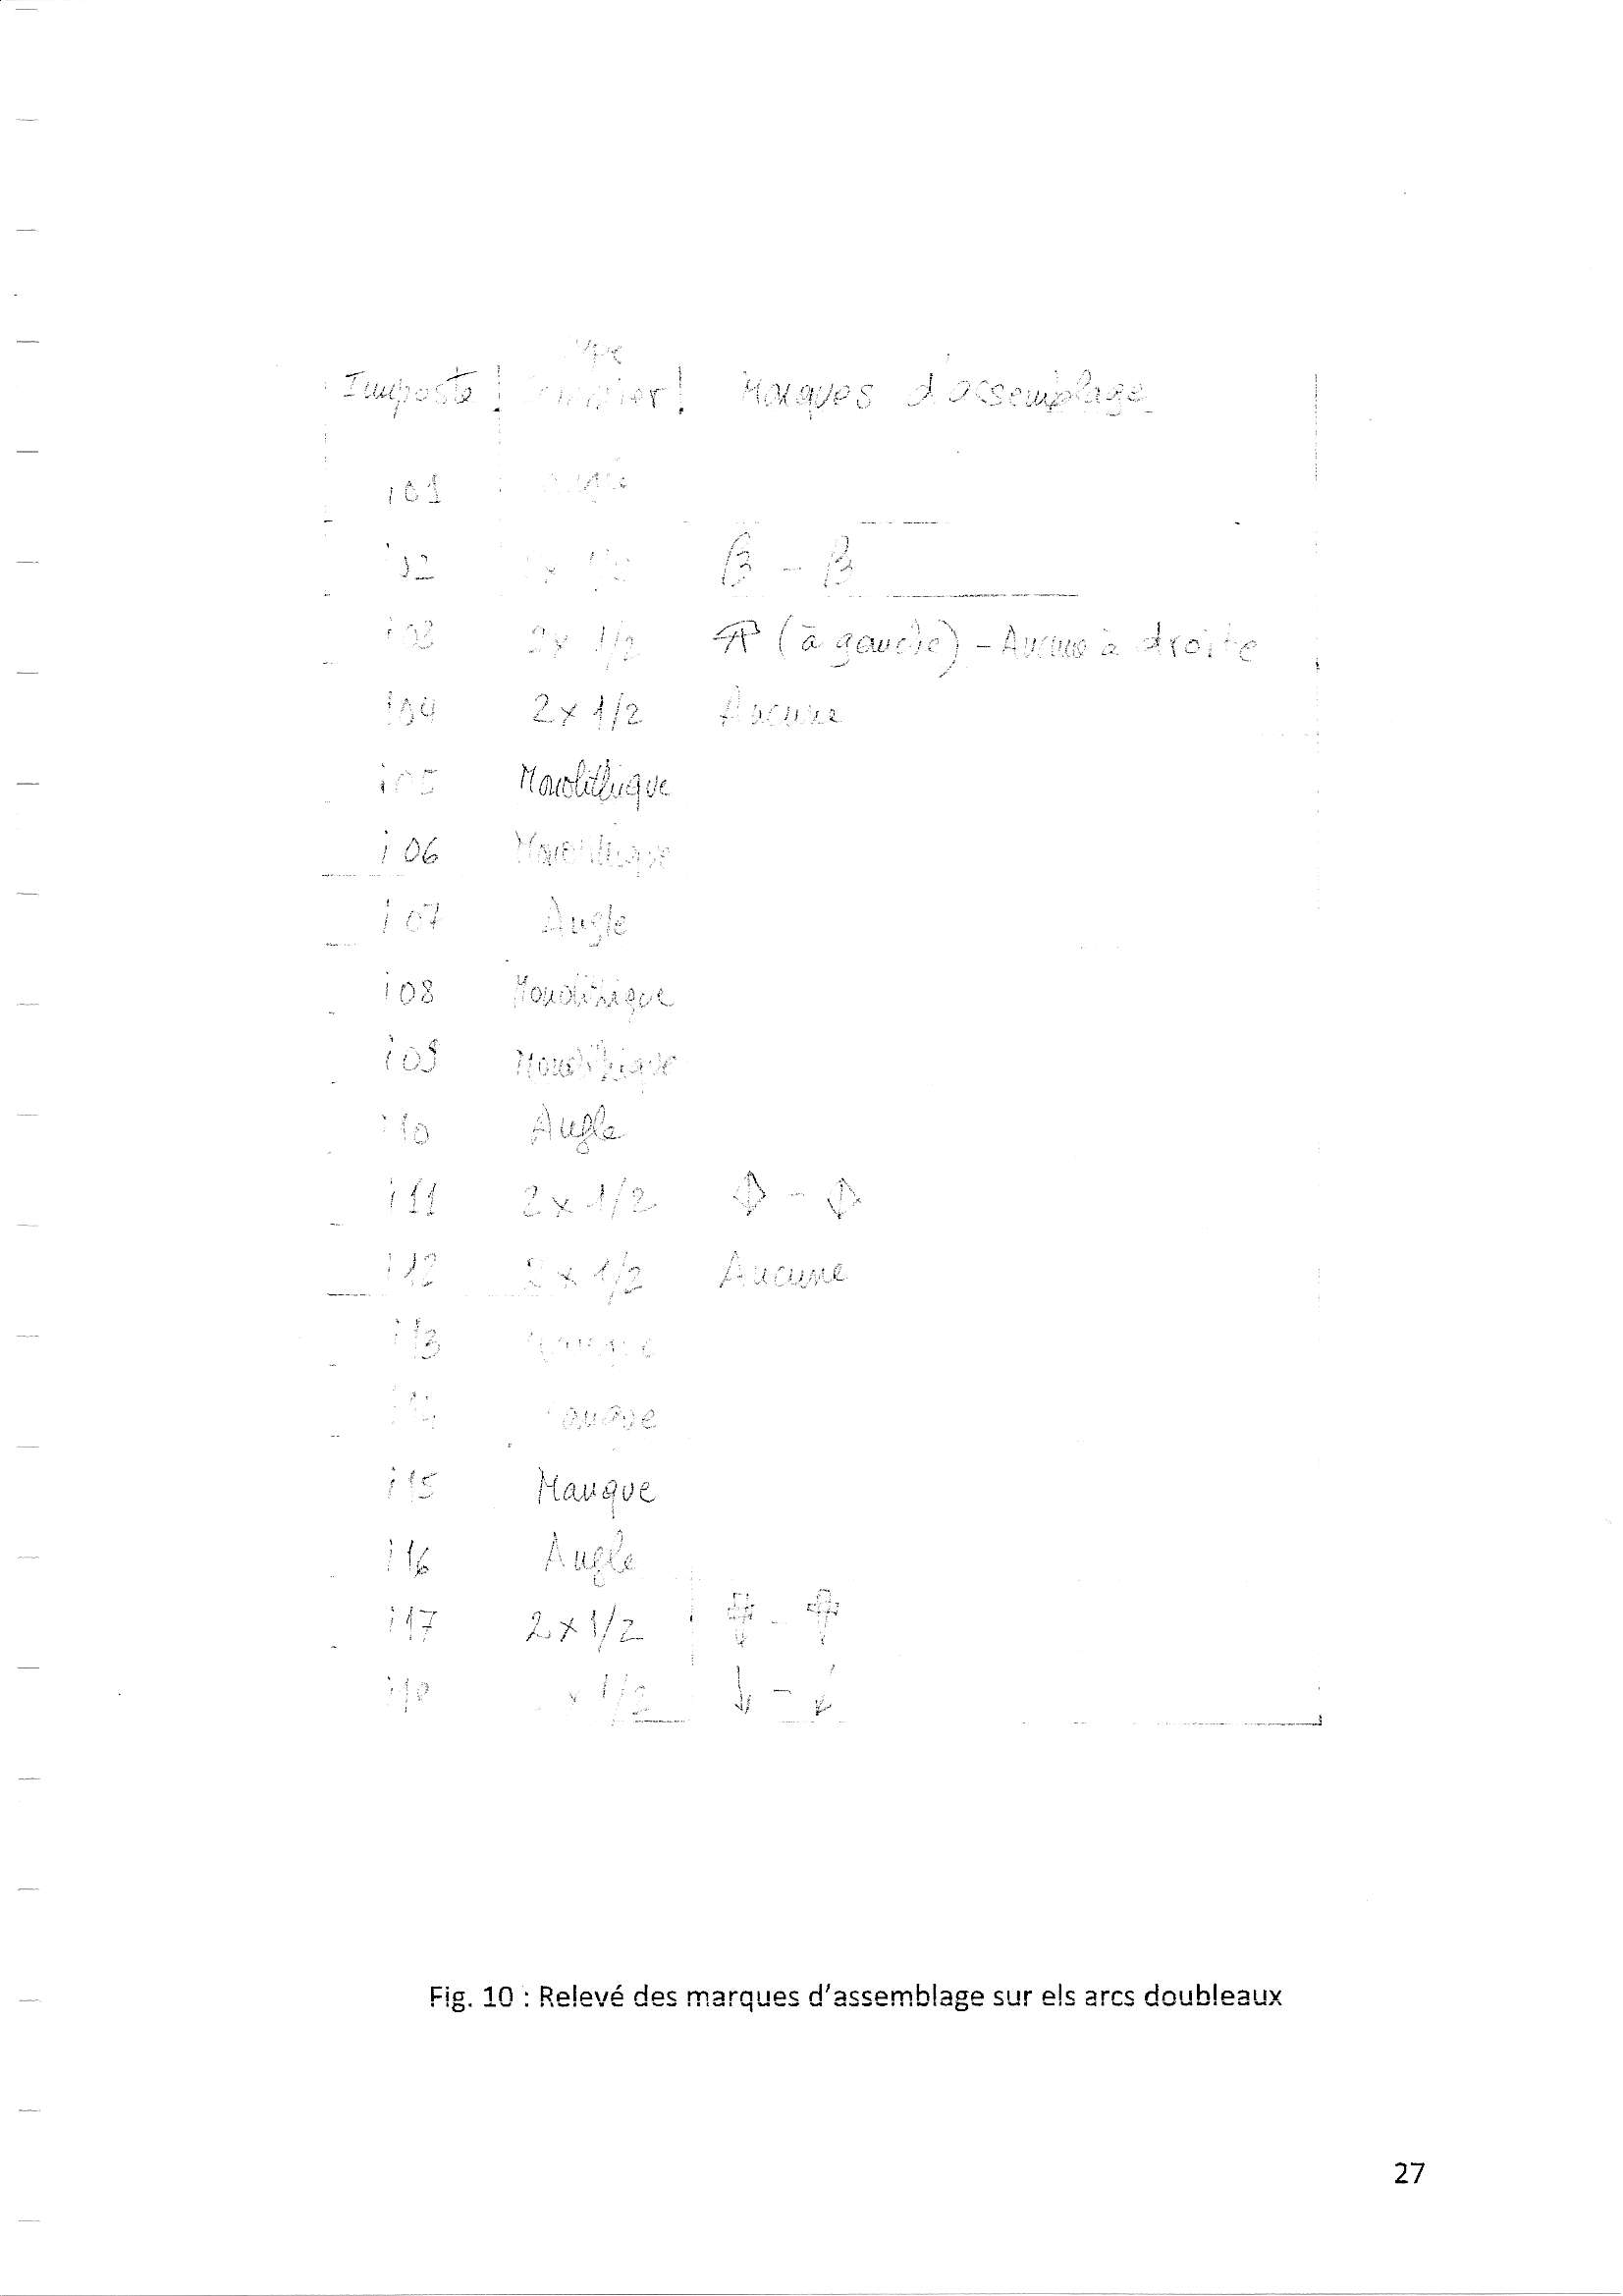 Type
Imposte sommier Marques d'assemblage
i01 Angle
i02 2x1/2 β - β
i03 2x 1/2 (à gauche) - Aucune à droite
i04 2x 1/2 Aucune
i05 Monolithique
i06 Monolithique
i07 Angle
i08 Monolithique
i09 Monolithique
i10 Angle
i11 2x 1/2 -
i12 2x 1/2 Aucune
i13 Manque
i14 Manque
i15 Manque
i16 Angle
i17 2x1/2 -
i18 2x 1/2 ↓ - ↓
Fig. 10 : Relevé des marques d'assemblage sur els arcs doubleaux
27